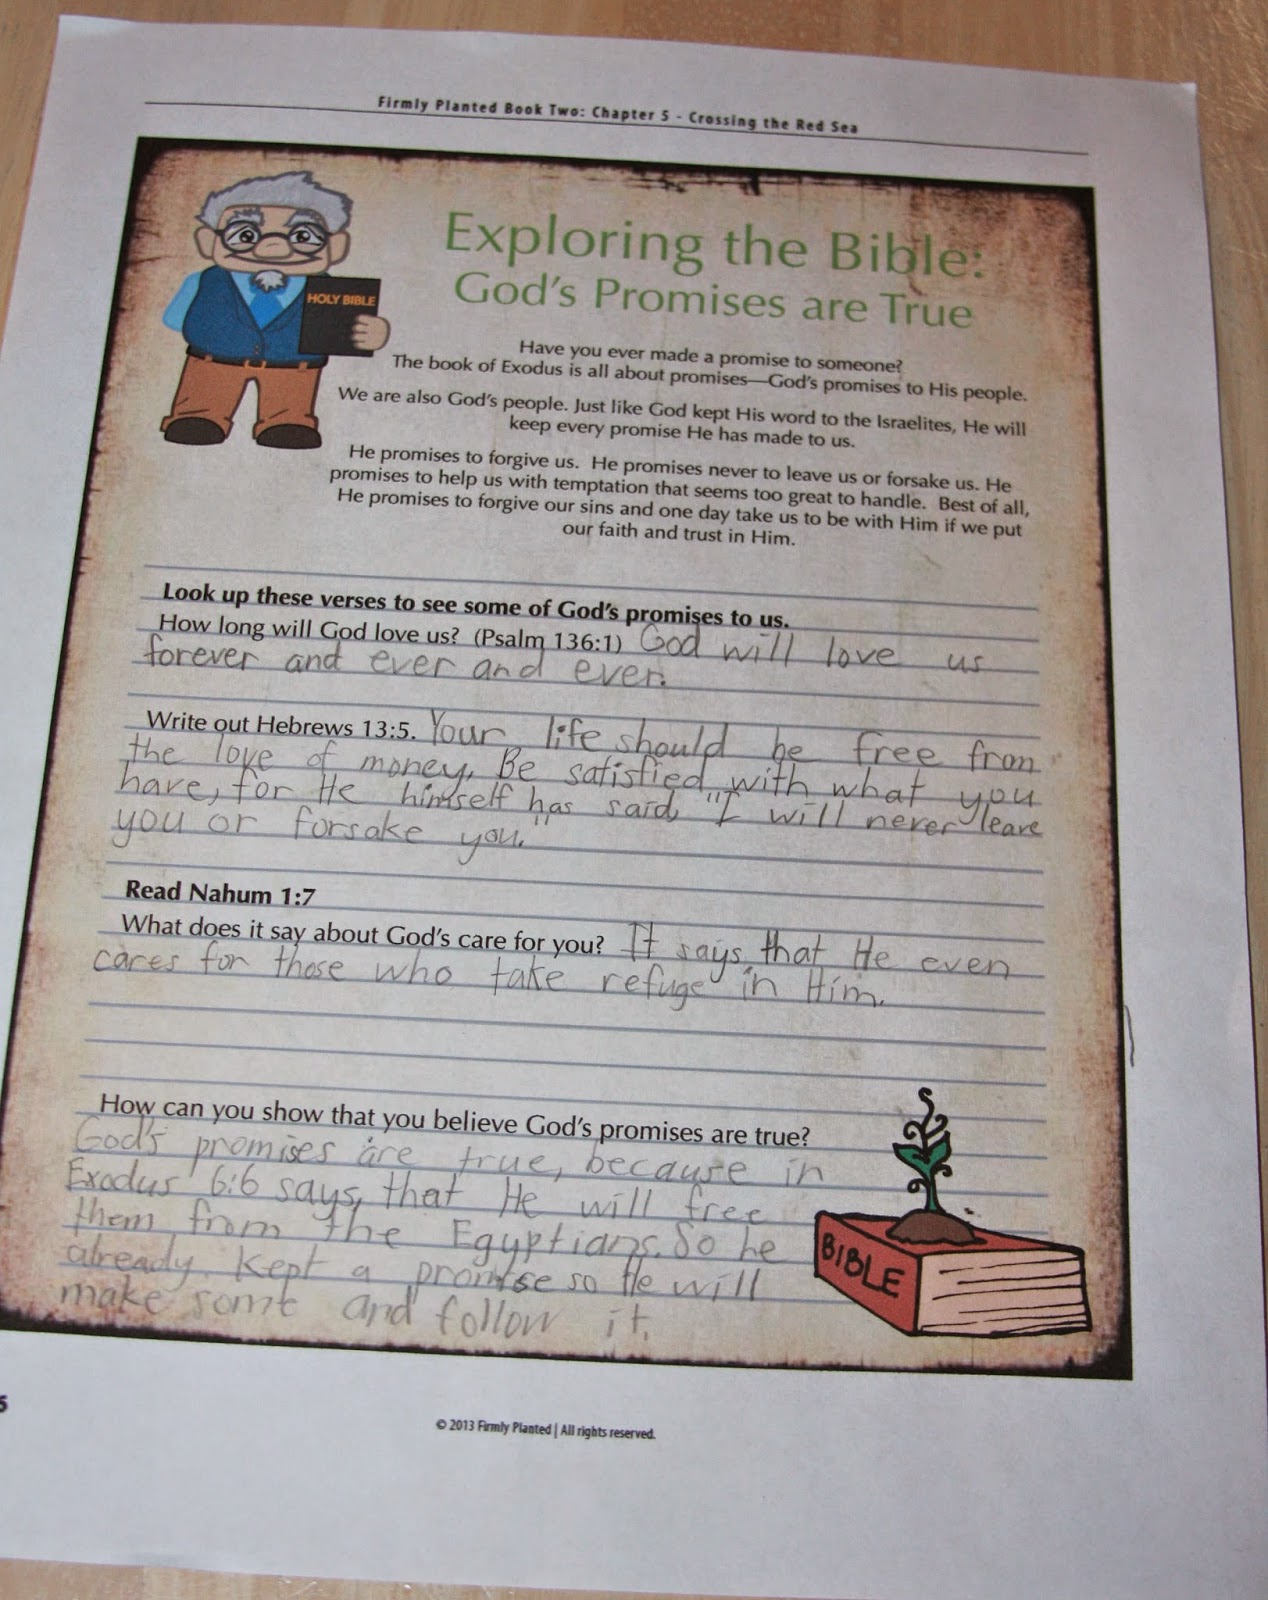 Firmly Planted Book Two: Chapter 5 - Crossing the Red Sea
HOLY BIBLE
Exploring the Bible:
God's Promises are True
Have you ever made a promise to someone?
The book of Exodus is all about promises—God's promises to His people.
We are also God's people. Just like God kept His word to the Israelites, He will
keep every promise He has made to us.
He promises to forgive us. He promises never to leave us or forsake us. He
promises to help us with temptation that seems too great to handle. Best of all,
He promises to forgive our sins and one day take us to be with Him if we put
our faith and trust in Him.
Look up these verses to see some of God's promises to us.
How long will God love us? (Psalm 136:1) God will love us
forever and ever and ever.
Write out Hebrews 13:5. Your life should be free from
the love of money. Be satisfied with what you
have, for He himself has said, "I will never leave
you or forsake you."
Read Nahum 1:7
What does it say about God's care for you? It says that He even
cares for those who take refuge in Him.
How can you show that you believe God's promises are true?
God's promises are true, because in
Exodus 6:6 says, that He will free
them from the Egyptians. So he
already kept a promise so He will
make some and follow it.
BIBLE
5
© 2013 Firmly Planted | All rights reserved.